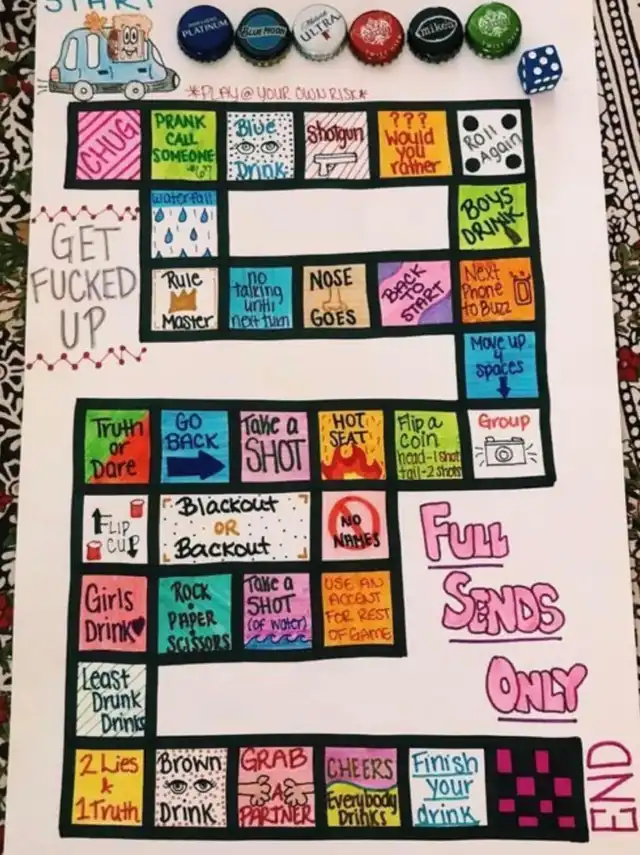 START
PLATINUM
BLUE MOON
ULTRA
mike's
*PLAY @ YOUR OWN RISK*
CHUG
PRANK
CALL
SOMEONE
*67
Blue
Drink
Shotgun
???
Would
you
rather
Roll
Again
waterfall
BOYS
DRINK
GET
FUCKED
UP
Rule
Master
no
talking
until
next turn
NOSE
GOES
BACK
TO
START
Next
Phone
to Buzz
Move up
4
spaces
Truth
or
Dare
GO
BACK
Take a
SHOT
HOT
SEAT
Flip a
coin
head-1 shot
tail-2 shots
Group
FLIP
CUP
Blackout
OR
Backout
NO
NAMES
FULL
SENDS
ONLY
Girls
Drink
ROCK
PAPER
SCISSORS
Take a
SHOT
(of water)
USE AN
ACCENT
FOR REST
OF GAME
Least
Drunk
Drinks
2 Lies
&
1 Truth
Brown
Drink
GRAB
A
PARTNER
CHEERS
Everybody
Drinks
Finish
your
drink
END